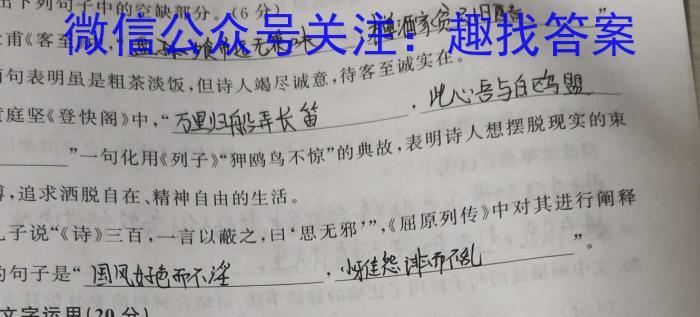 出下列句子中的空缺部分。(6分)
微信公众号关注：趣找答案
甫《客至》
句表明虽是粗茶淡饭，但诗人竭尽诚意，待客至诚实在。
庭坚《登快阁》中，“万里归船弄长笛，此心吾与白鸥盟
”一句化用《列子》“狎鸥鸟不惊”的典故，表明诗人想摆脱现实的束
缚，追求洒脱自在、精神自由的生活。
孔子说“《诗》三百，一言以蔽之，曰‘思无邪’”，《屈原列传》中对其进行阐释
的句子是“国风好色而不淫，小雅怨诽而不乱”。
文字运用(20分)